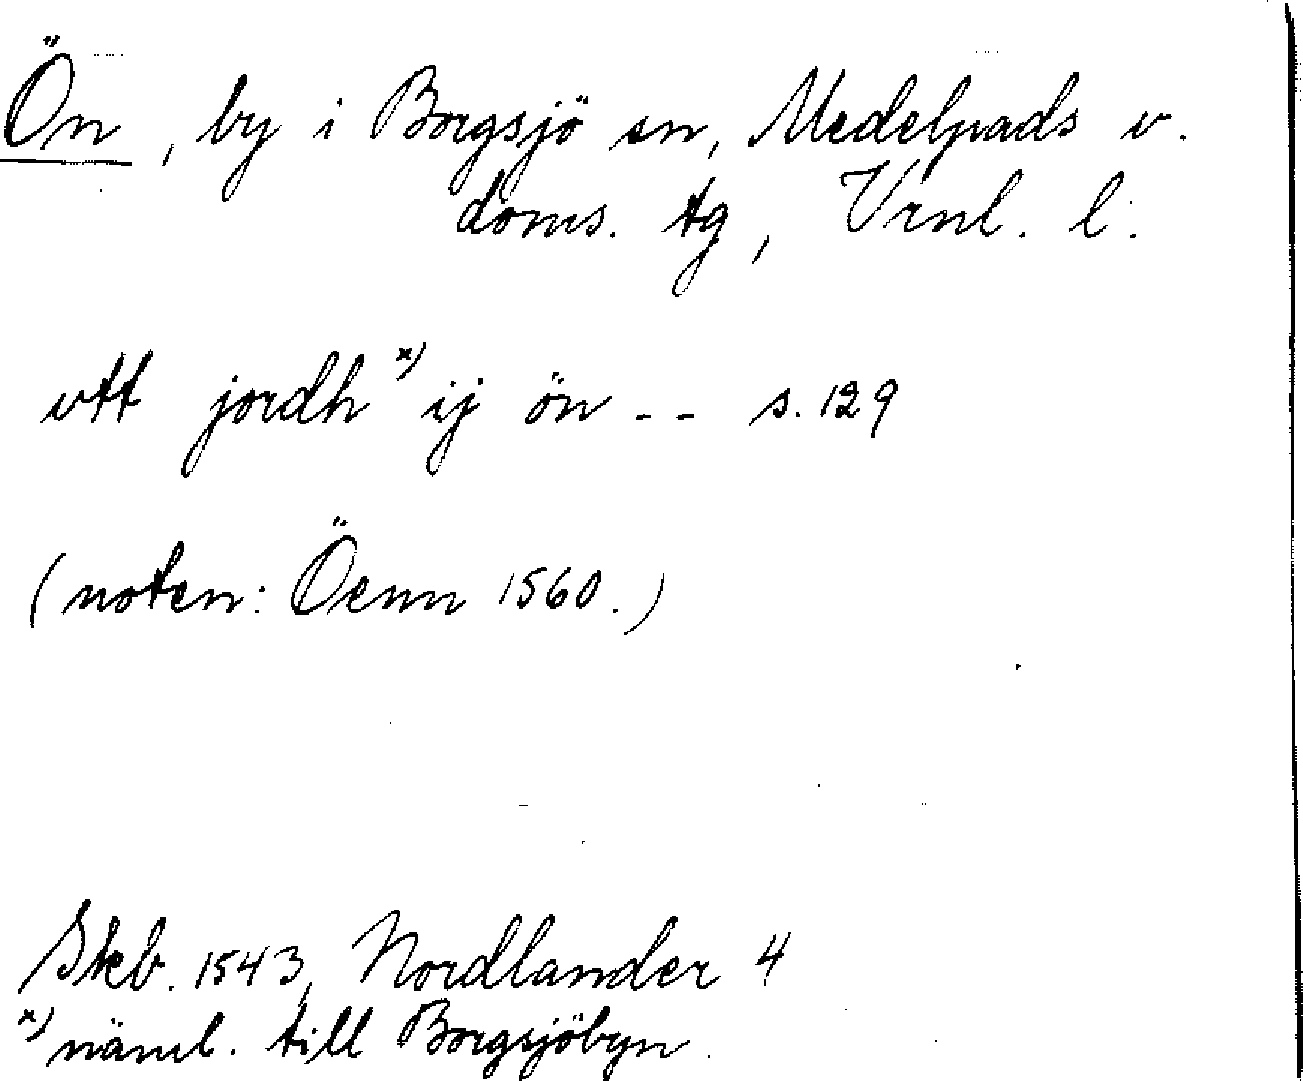 Ön, by i Borgsjö sn, Medelpads v.
doms. tg, Vrnl. l.
vtt jordh x) ij ön -- s. 129
(noten: Öenn 1560.)
Skb. 1543, Nordlander 4
x) näml. till Borgsjöbyn.